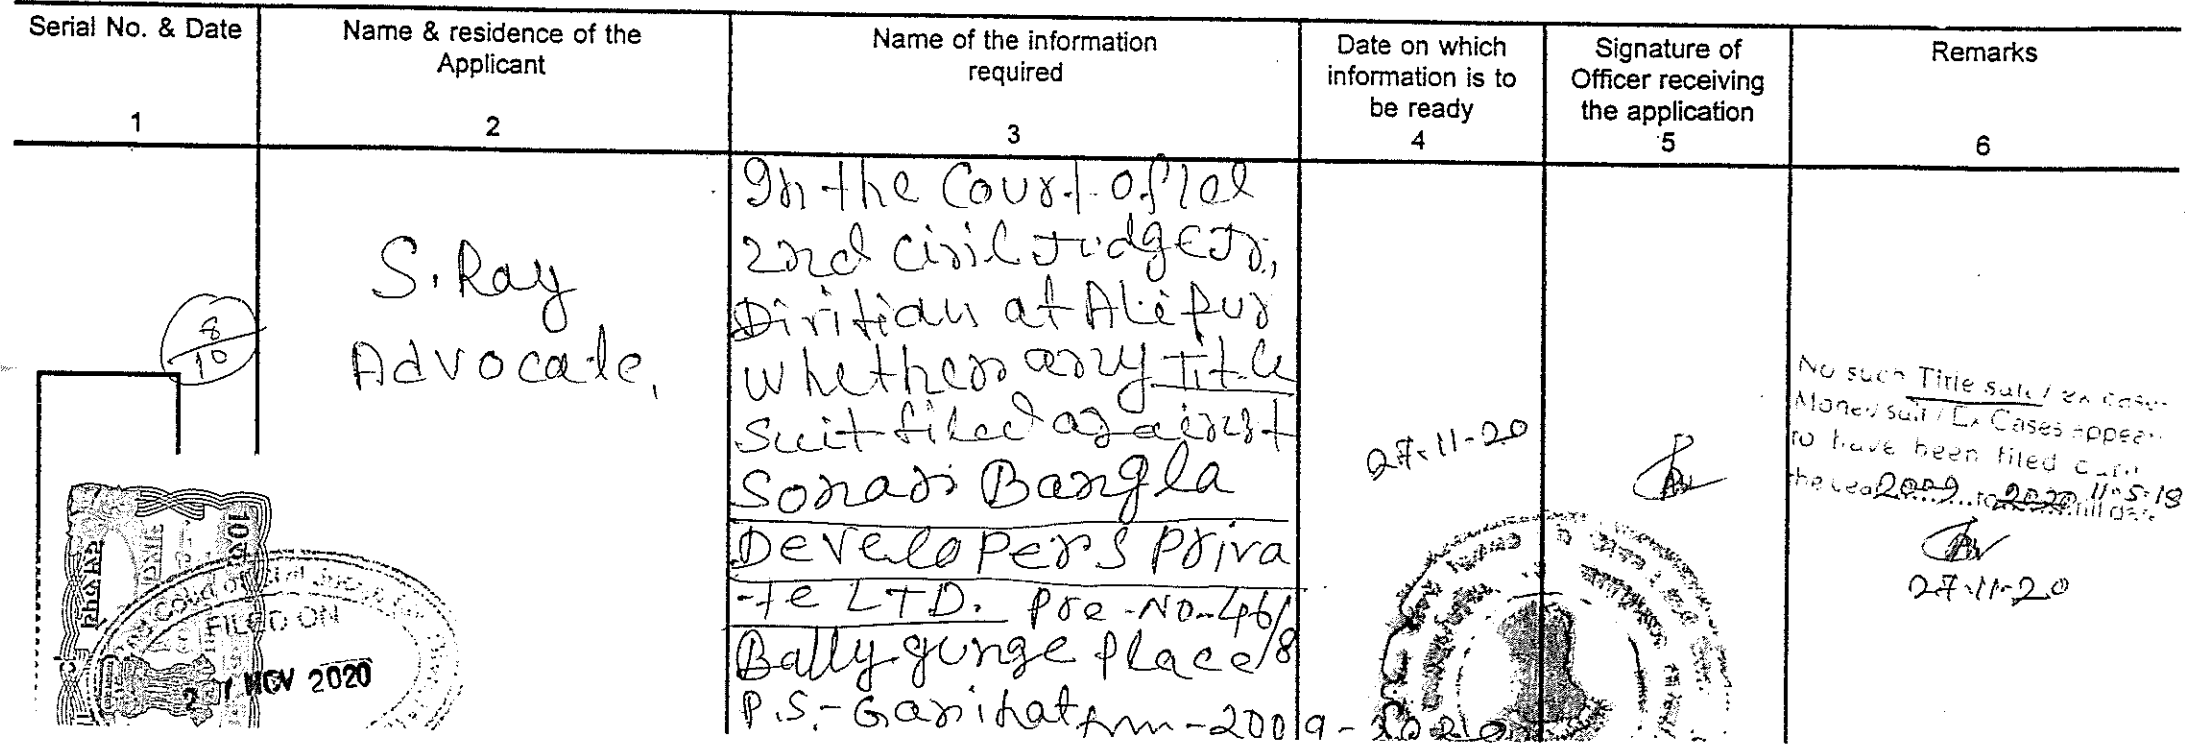 Serial No. & Date
1
Name & residence of the
Applicant
2
Name of the information
required
3
Date on which
information is to
be ready
4
Signature of
Officer receiving
the application
5
Remarks
6
8/10
S. Ray
Advocate,
In the Court of
2nd Civil Judge Jr,
Division at Alipur
Whether any Title
Suit filed against
Sonar Bangla
Developers Priva
-te LTD. Pre-No-46/8
Ballygunge Place
P.S.- Gariahat from - 2009 - 2020
27-11-20
No such Title suit / Ex Cases
Money suit / Ex Cases appear
to have been filed
the year 2009 to 2020 till date
11-5-18
27-11-20
FILED ON
NOV 2020